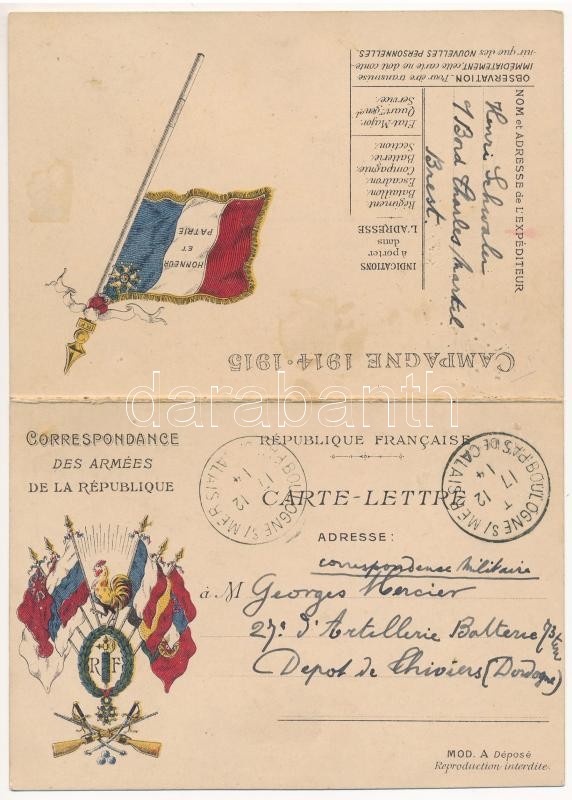 OBSERVATION. Pour être transmise
IMMÉDIATEMENT, cette carte ne doit conte-
nir que des NOUVELLES PERSONNELLES.
NOM et ADRESSE de L'EXPÉDITEUR
Henri Schwaler
Bord Charles Martel
Brest.
INDICATIONS
à porter
dans
L'ADRESSE
Régiment
Bataillon.
Escadron.
Compagnie.
Batterie.
Section.
Etat-Major.
Quart.r gen.al
Service.
HONNEUR
ET
PATRIE
CAMPAGNE 1914-1915
darabanth
CORRESPONDANCE
DES ARMÉES
DE LA RÉPUBLIQUE
RF
RÉPUBLIQUE FRANÇAISE
CARTE-LETTRE
BOULOGNE S/MER PAS DE CALAIS
17 12
14
BOULOGNE S/MER PAS DE CALAIS
17 12
14
ADRESSE :
correspondence Militaire
à M Georges Mercier
27e d'Artillerie Batterie
Depot de Thiviers (Dordogne)
MOD. A Déposé
Reproduction interdite.